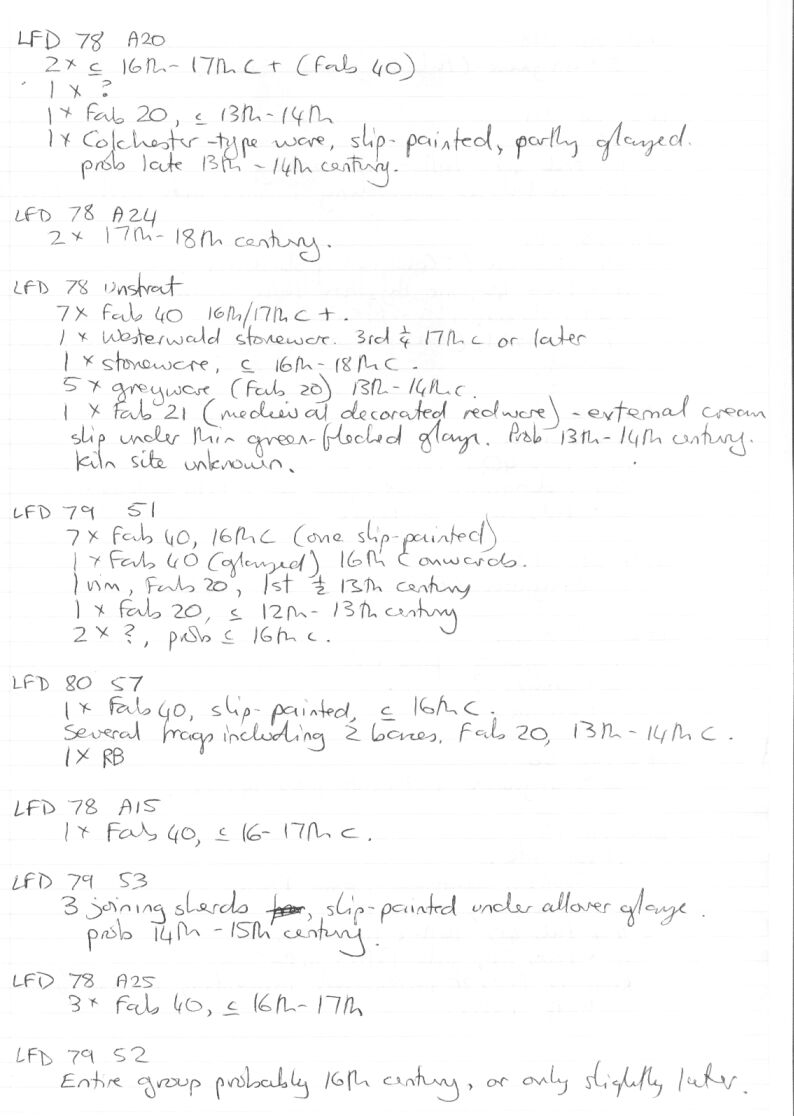 LFD 78 A20
2 x c 16th - 17th C + (Fab 40)
1 x ?
1 x Fab 20, c 13th - 14th
1 x Colchester-type ware, slip-painted, partly glazed.
prob late 13th - 14th century.
LFD 78 A24
2 x 17th - 18th century.
LFD 78 Unstrat
7 x Fab 40 16th/17th C +.
1 x Westerwald stoneware. 3rd ¼ 17th C or later
1 x stoneware, c 16th - 18th C.
5 x greyware (Fab 20) 13th - 14th C.
1 x Fab 21 (medieval decorated redware) - external cream
slip under thin green-flecked glaze. Prob 13th - 14th century.
kiln site unknown.
LFD 79 51
7 x Fab 40, 16th C (one slip-painted)
1 x Fab 40 (glazed) 16th C onwards.
1 rim, Fab 20, 1st ½ 13th century
1 x Fab 20, c 12th - 13th century
2 x ?, prob c 16th C.
LFD 80 57
1 x Fab 40, slip-painted, c 16th C.
Several frags including 2 bases, Fab 20, 13th - 14th C.
1 x RB
LFD 78 A15
1 x Fab 40, c 16 - 17th C.
LFD 79 53
3 joining sherds , slip-painted under allover glaze.
prob 14th - 15th century.
LFD 78 A25
3 x Fab 40, c 16th - 17th
LFD 79 52
Entire group probably 16th century, or only slightly later.